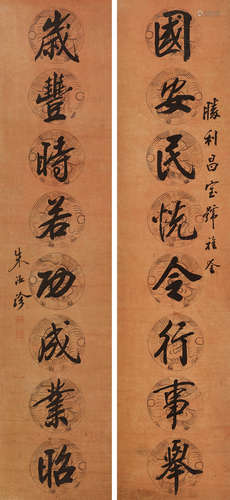 勝利昌宝號雅鉴
國安民悅令行事舉
歲豐時若功成業昭
朱汝珍